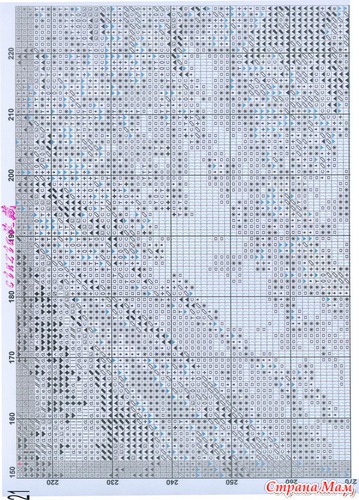 220
210
200
190
180
170
160
150
220
230
240
250
260
270
21
Страна Мам